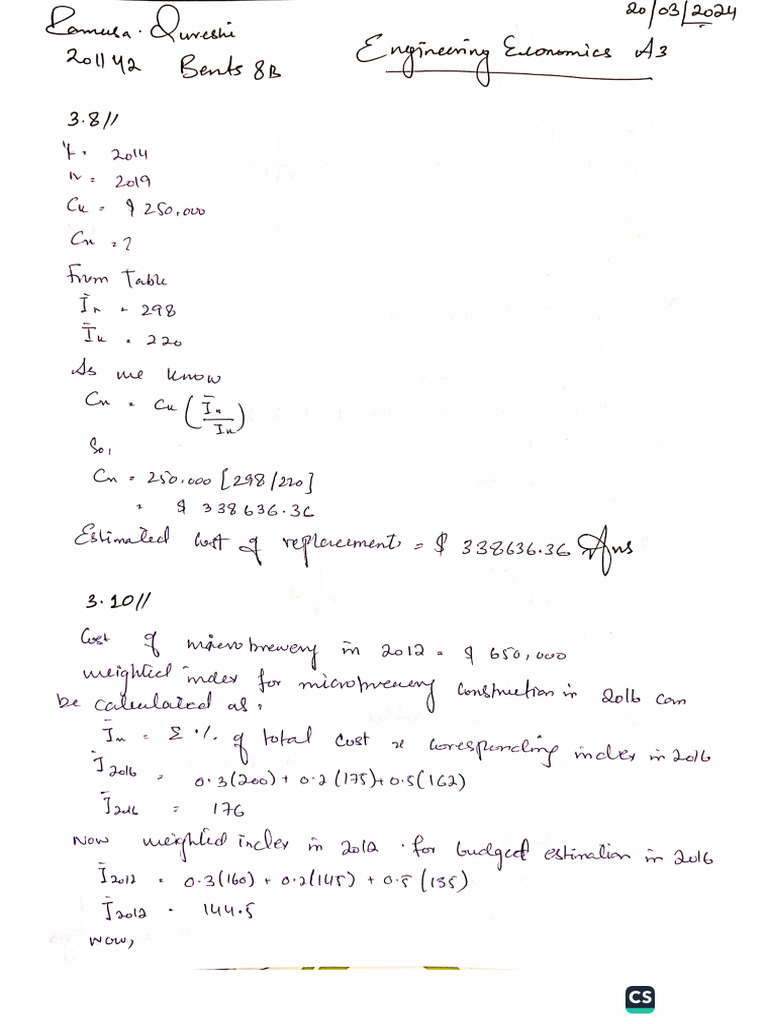 Ramusa. Qureshi
20/03/2024
201142 Bents 8B
Engineering Economics A3
3.8//
k = 2014
n = 2019
Ck = $ 250,000
Cn = ?
From Table
Īn = 298
Īk = 220
As we know
Cn = Ck (Īn/Ik)
So,
Cn = 250,000 [298/220]
= $ 338636.36
Estimated cost of replacement = $ 338636.36 Ans
3.10//
Cost of microbrewery in 2012 = $ 650,000
weighted index for microbrewery construction in 2016 can
be calculated as,
Īn = Σ % of total cost x corresponding index in 2016
Ī2016 = 0.3(200) + 0.2(175) + 0.5(162)
Ī2016 = 176
Now weighted index in 2012 for budget estimation in 2016
Ī2012 = 0.3(160) + 0.2(145) + 0.5(135)
Ī2012 = 144.5
Now,
CS